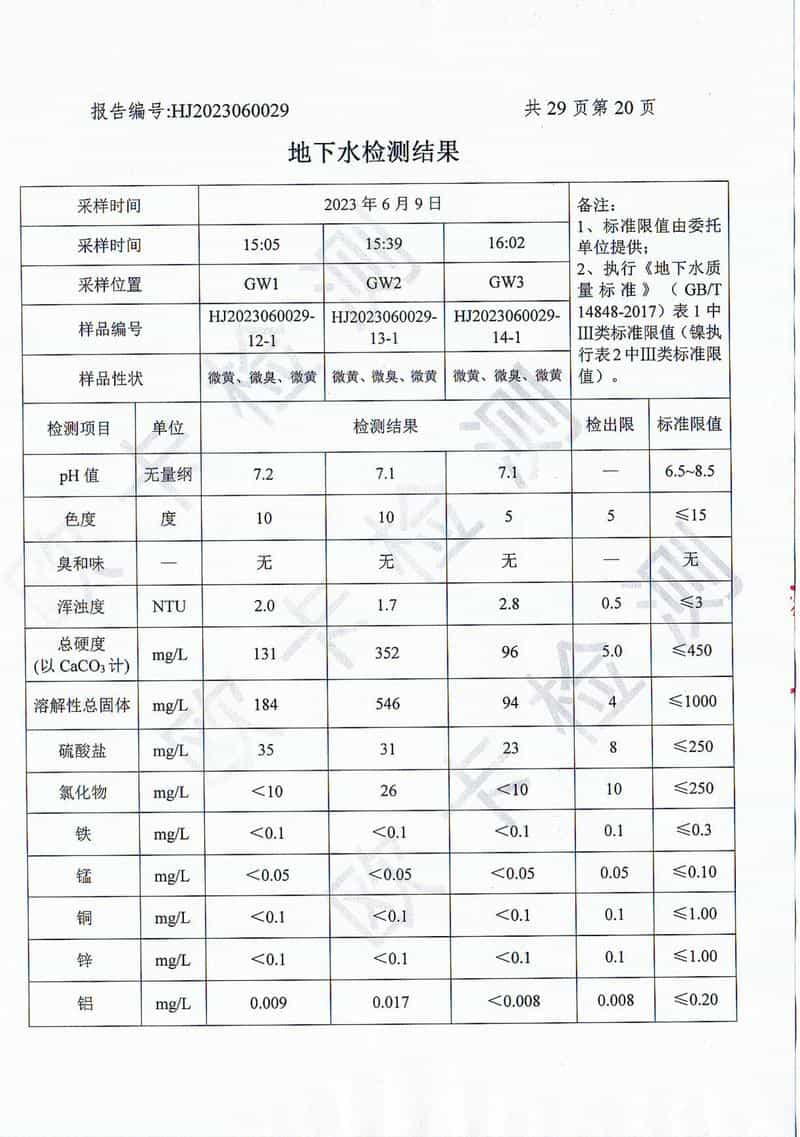 报告编号:HJ2023060029 共 29 页第 20 页
地下水检测结果
采样时间 2023 年 6 月 9 日
采样时间 15:05 15:39 16:02
采样位置 GW1 GW2 GW3
样品编号 HJ2023060029-12-1 HJ2023060029-13-1 HJ2023060029-14-1
样品性状 微黄、微臭、微黄 微黄、微臭、微黄 微黄、微臭、微黄
备注:
1、标准限值由委托
单位提供;
2、执行《地下水质
量标准》（GB/T
14848-2017）表 1 中
Ⅲ类标准限值（镍执
行表 2 中Ⅲ类标准限
值）。
检测项目 单位 检测结果 检出限 标准限值
pH 值 无量纲 7.2 7.1 7.1 — 6.5~8.5
色度 度 10 10 5 5 ≤15
臭和味 — 无 无 无 — 无
浑浊度 NTU 2.0 1.7 2.8 0.5 ≤3
总硬度
(以 CaCO₃ 计) mg/L 131 352 96 5.0 ≤450
溶解性总固体 mg/L 184 546 94 4 ≤1000
硫酸盐 mg/L 35 31 23 8 ≤250
氯化物 mg/L ＜10 26 ＜10 10 ≤250
铁 mg/L ＜0.1 ＜0.1 ＜0.1 0.1 ≤0.3
锰 mg/L ＜0.05 ＜0.05 ＜0.05 0.05 ≤0.10
铜 mg/L ＜0.1 ＜0.1 ＜0.1 0.1 ≤1.00
锌 mg/L ＜0.1 ＜0.1 ＜0.1 0.1 ≤1.00
铝 mg/L 0.009 0.017 ＜0.008 0.008 ≤0.20
欧卡检测
欧卡检测
欧卡检测